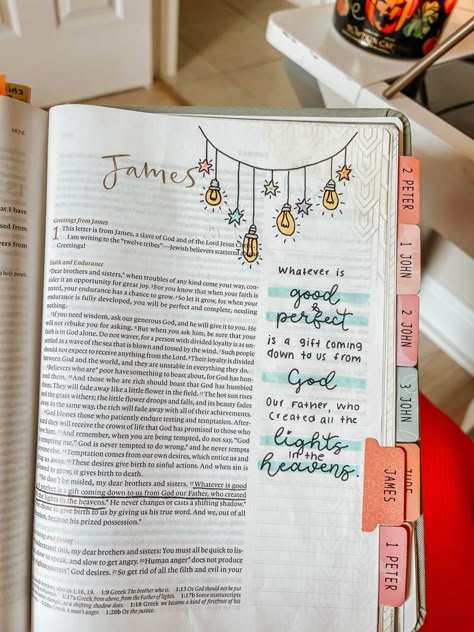 James
Greetings from James
1 This letter is from James, a slave of God and of the Lord Jesus
I am writing to the "twelve tribes"—Jewish believers scattered
Greetings!
Faith and Endurance
²Dear brothers and sisters,* when troubles of any kind come your way, con-
sider it an opportunity for great joy. ³For you know that when your faith is
tested, your endurance has a chance to grow. ⁴So let it grow, for when your
endurance is fully developed, you will be perfect and complete, needing
nothing.
⁵If you need wisdom, ask our generous God, and he will give it to you. He
will not rebuke you for asking. ⁶But when you ask him, be sure that your
faith is in God alone. Do not waver, for a person with divided loyalty is as un-
settled as a wave of the sea that is blown and tossed by the wind. ⁷Such people
should not expect to receive anything from the Lord. ⁸Their loyalty is divided
between God and the world, and they are unstable in everything they do.
⁹Believers who are* poor have something to boast about, for God has hon-
ored them. ¹⁰And those who are rich should boast that God has humbled
them. They will fade away like a little flower in the field. ¹¹The hot sun rises
and the grass withers; the little flower droops and falls, and its beauty fades
away. In the same way, the rich will fade away with all of their achievements.
¹²God blesses those who patiently endure testing and temptation. After-
ward they will receive the crown of life that God has promised to those who
love him. ¹³And remember, when you are being tempted, do not say, "God
is tempting me." God is never tempted to do wrong,* and he never tempts
anyone else. ¹⁴Temptation comes from our own desires, which entice us and
drag us away. ¹⁵These desires give birth to sinful actions. And when sin is
allowed to grow, it gives birth to death.
¹⁶So don't be misled, my dear brothers and sisters. ¹⁷Whatever is good
and perfect is a gift coming down to us from God our Father, who created
all the lights in the heavens.* He never changes or casts a shifting shadow.*
chose to give birth to us by giving us his true word. And we, out of all
creation, became his prized possession.*
Listening and Doing
understand this, my dear brothers and sisters: You must all be quick to lis-
slow to speak, and slow to get angry. ²⁰Human anger* does not produce
righteousness* God desires. ²¹So get rid of all the filth and evil in your
Whatever is
good
&
perfect
is a gift coming
down to us from
God
Our Father, who
created all the
lights
in the
heavens.
2 PETER
1 JOHN
2 JOHN
3 JOHN
JUDE
JAMES
1 PETER
PUMPKIN